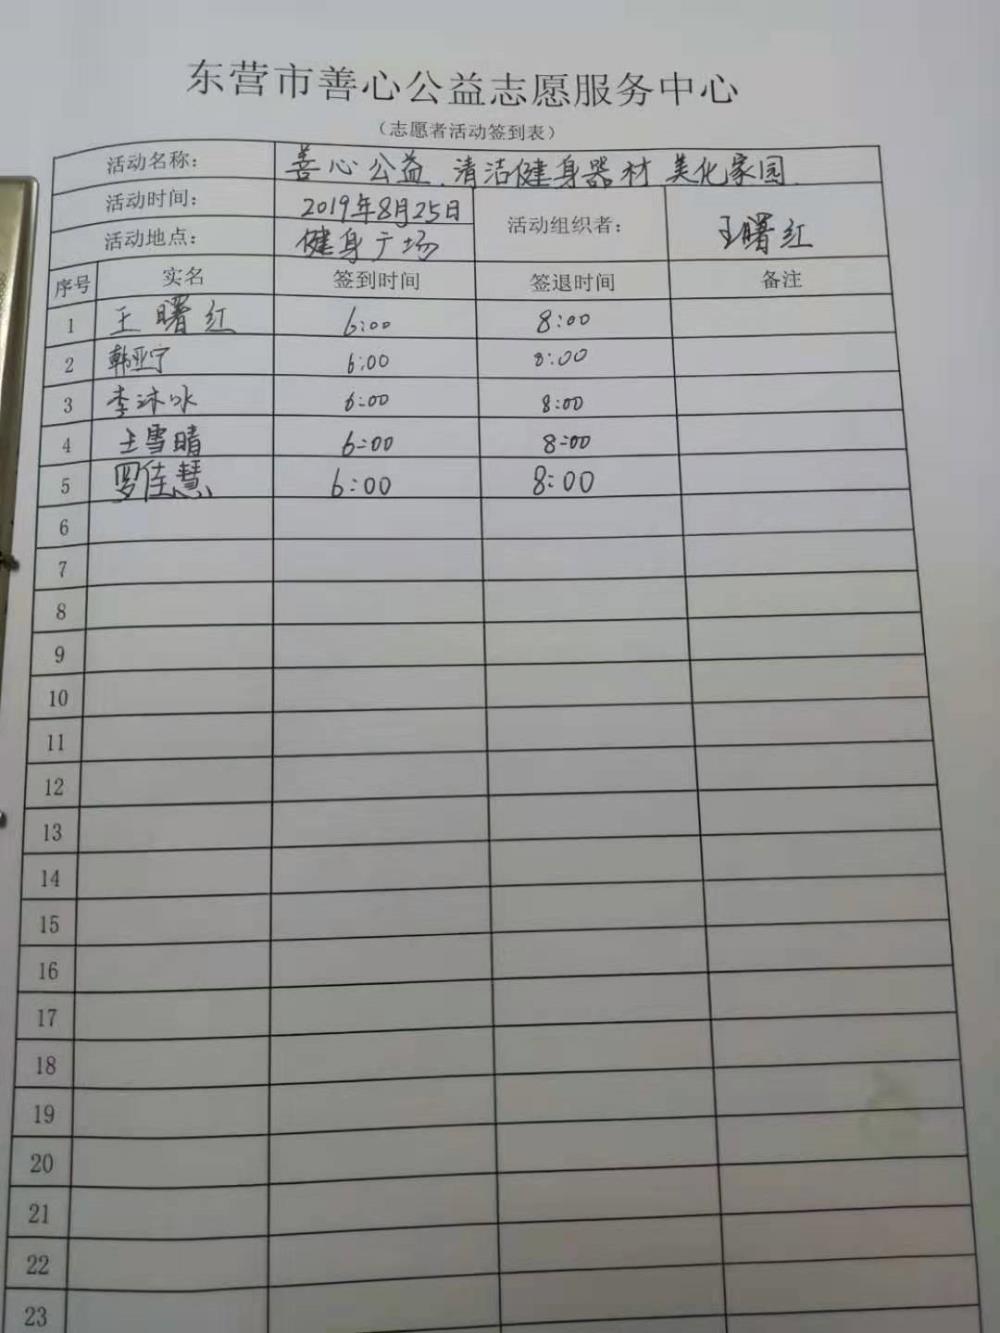 东营市善心公益志愿服务中心
（志愿者活动签到表）
活动名称： 善心公益.清洁健身器材 美化家园.
活动时间： 2019年8月25日 活动组织者： 王曙红
活动地点： 健身广场
序号 实名 签到时间 签退时间 备注
1 王曙红 6:00 8:00
2 韩亚宁 6:00 8:00
3 李沐冰 6:00 8:00
4 王雪晴 6:00 8:00
5 罗佳慧 6:00 8:00
6
7
8
9
10
11
12
13
14
15
16
17
18
19
20
21
22
23